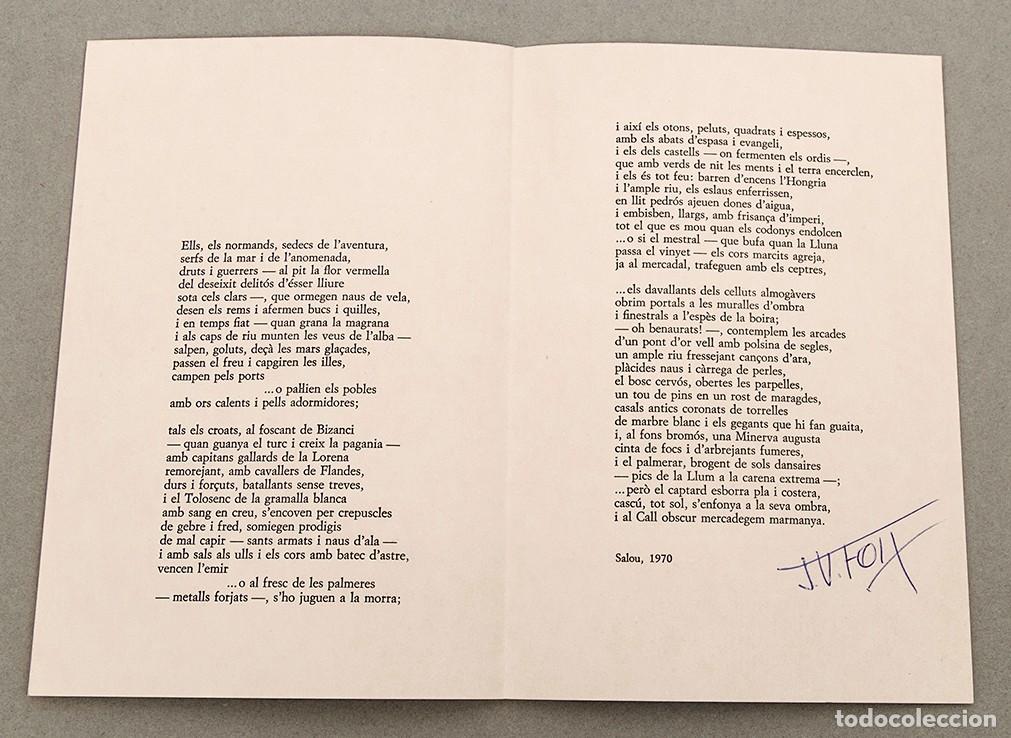 Ells, els normands, sedecs de l'aventura,
serfs de la mar i de l'anomenada,
druts i guerrers — al pit la flor vermella
del deseixit delitós d'ésser lliure
sota cels clars —, que ormegen naus de vela,
desen els rems i afermen bucs i quilles,
i en temps fiat — quan grana la magrana
i als caps de riu munten les veus de l'alba —
salpen, goluts, deçà les mars glaçades,
passen el freu i capgiren les illes,
campen pels ports
...o pal·lien els pobles
amb ors calents i pells adormidores;
tals els croats, al foscant de Bizanci
— quan guanya el turc i creix la pagania —
amb capitans gallards de la Lorena
remorejant, amb cavallers de Flandes,
durs i forçuts, batallants sense treves,
i el Tolosenc de la gramalla blanca
amb sang en creu, s'encoven per crepuscles
de gebre i fred, somiegen prodigis
de mal capir — sants armats i naus d'ala —
i amb sals als ulls i els cors amb batec d'astre,
vencen l'emir
...o al fresc de les palmeres
— metalls forjats —, s'ho juguen a la morra;
i així els otons, peluts, quadrats i espessos,
amb els abats d'espasa i evangeli,
i els dels castells — on fermenten els ordis —,
que amb verds de nit les ments i el terra encerclen,
i els és tot feu: barren d'encens l'Hongria
i l'ample riu, els eslaus enferrissen,
en llit pedrós ajeuen dones d'aigua,
i embisben, llargs, amb frisança d'imperi,
tot el que es mou quan els codonys endolcen
...o si el mestral — que bufa quan la Lluna
passa el vinyet — els cors marcits agreja,
ja al mercadal, trafeguen amb els ceptres,
...els davallants dels celluts almogàvers
obrim portals a les muralles d'ombra
i finestrals a l'espès de la boira;
— oh benaurats! —, contemplem les arcades
d'un pont d'or vell amb polsina de segles,
un ample riu fressejant cançons d'ara,
plàcides naus i càrrega de perles,
el bosc cervós, obertes les parpelles,
un tou de pins en un rost de maragdes,
casals antics coronats de torrelles
de marbre blanc i els gegants que hi fan guaita,
i, al fons bromós, una Minerva augusta
cinta de focs i d'arbrejants fumeres,
i el palmerar, brogent de sols dansaires
— pics de la Llum a la carena extrema —;
...però el captard esborra pla i costera,
cascú, tot sol, s'enfonya a la seva ombra,
i al Call obscur mercadegem marmanya.
Salou, 1970
J.V. FOIX
todocoleccion